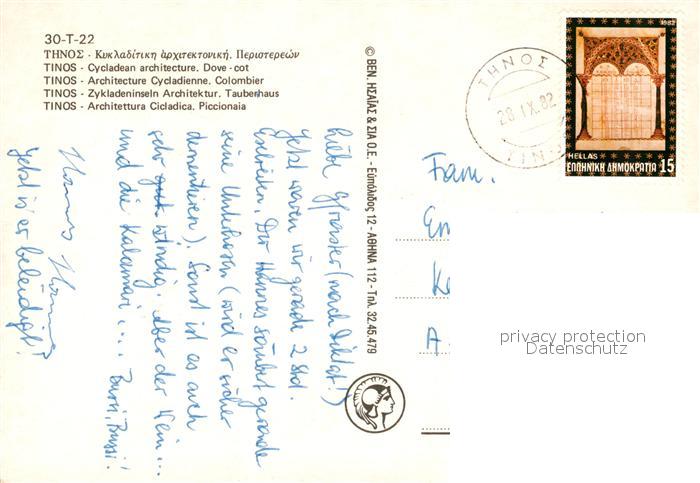 30-T-22
ΤΗΝΟΣ - Κυκλαδίτικη ἀρχιτεκτονική. Περιστερεών
TINOS - Cycladean architecture. Dove-cot
TINOS - Architecture Cycladienne. Colombier
TINOS - Zykladeninseln Architektur. Taubenhaus
TINOS - Architettura Cicladica. Piccionaia
© ΒΕΝ. ΗΣΑΪΑΣ & ΣΙΑ Ο.Ε. - Εὐπόλιδος 12 - ΑΘΗΝΑ 112 - Τηλ. 32.45.479
ΤΗΝΟΣ
28 IX. 82
1982
HELLAS
ΕΛΛΗΝΙΚΗ ΔΗΜΟΚΡΑΤΙΑ 15
(nach Diktat!)
Jetzt waren wir gerade 2 Std.
Der Hannes säubert gerade
seine Unterhosen (wird er sicher
dementieren). Sonst ist es auch
sehr windig. Aber der Wein...
und die Kalamari... Bussi, Bussi!
Hannes
Jetzt ist er beleidigt!
Fam.
privacy protection
Datenschutz